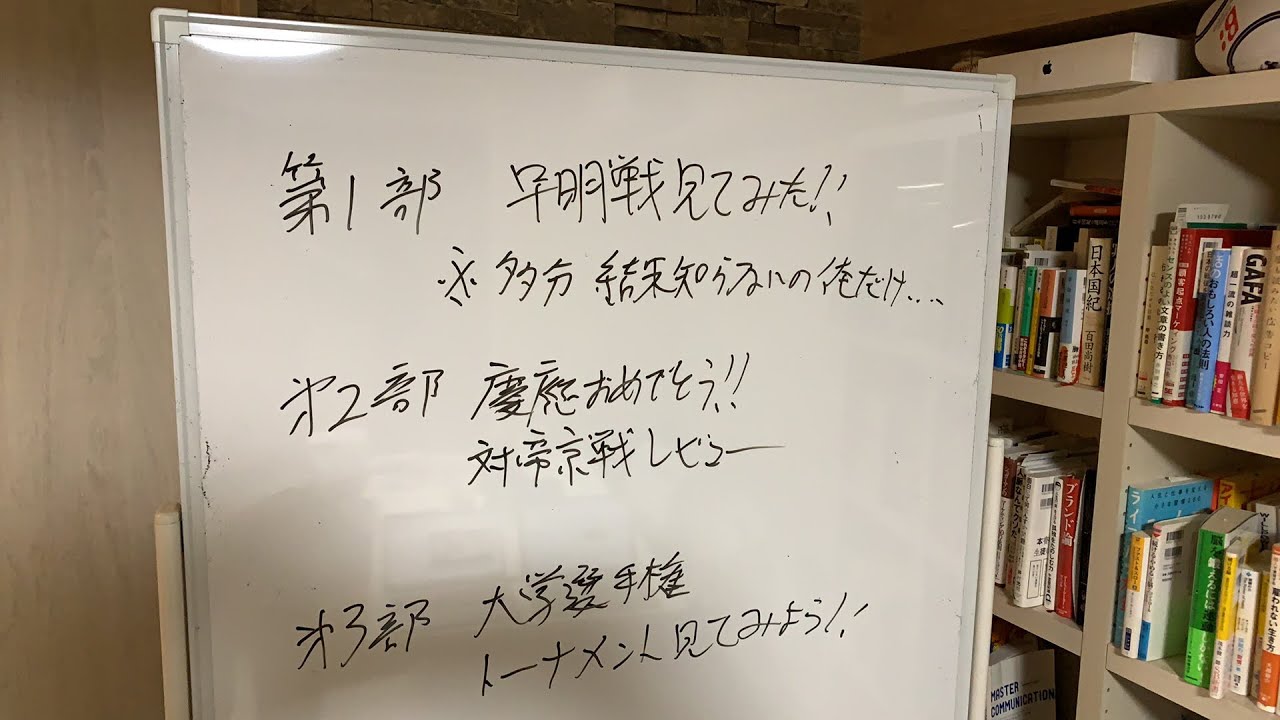 第1部 早明戦見てみた!!
※多分 結果知らないの俺だけ....
第2部 慶應おめでとう!!
対帝京戦レビュー
第3部 大学選手権
トーナメント見てみよう!!
日本国紀
百田尚樹
顧客起点マーケティング
超一流の雑談力
GAFA
ブランド論
MASTER
COMMUNICATION